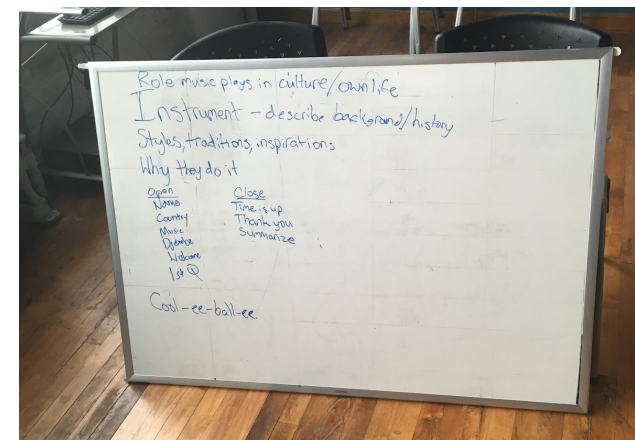 Role music plays in culture/own life
Instrument – describe background/history
Styles, traditions, inspirations
Why they do it
Open
Name
Country
Music
Djembe
Welcome
1st Q
Close
Time is up
Thank you
Summarize
Cool-ee-ball-ee